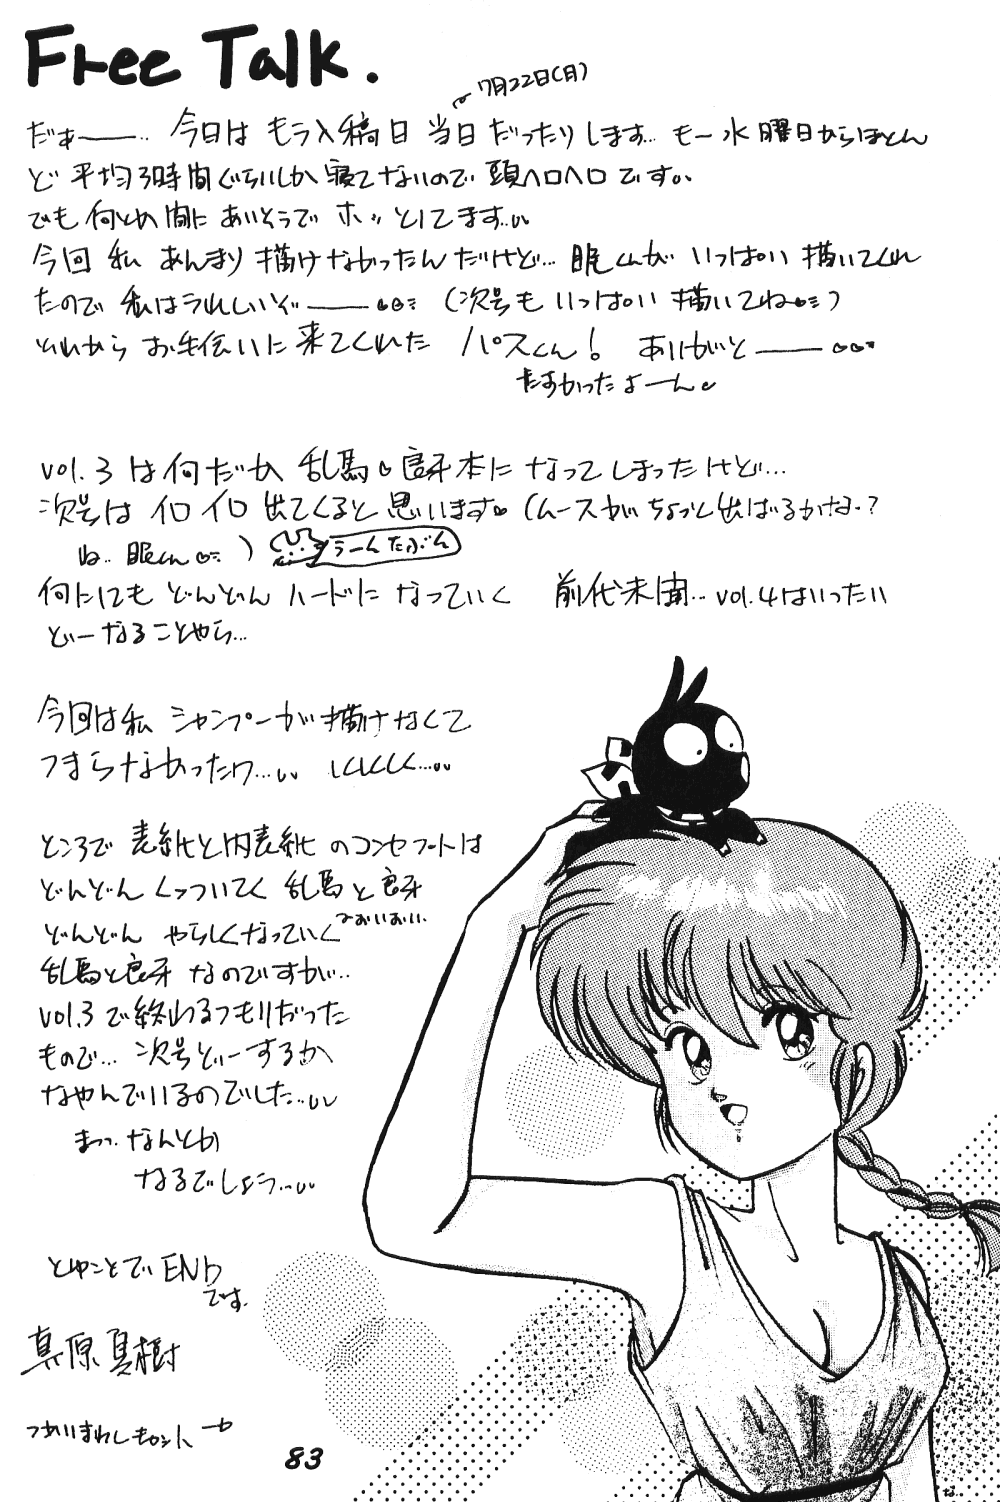 Free Talk.
7月22日(月)
だぁ――‥ 今日は もう入稿日 当日 だったりします… もー水曜日からほとん
ど 平均3時間ぐらいしか 寝てないので 頭ヘロヘロです‥
でも 何とか 間に あいそうで ホッ としてます‥
今回 私 あんまり 描けなかったんだけど… 眠くんが いっぱい 描いてくれ
たので 私はうれしいぞ―― (次号も いっぱい 描いてね)
それから お手伝いに 来てくれた パスくん! ありがと――
たすかったよーん
vol.3 は何だか 乱馬 良牙本に なってしまったけど…
次号は イロイロ 出てくると 思います (ムースがちょっと出ばるかな?
ね‥ 眠くん )
うーんたぶん
何にしても どんどん ハードに なっていく 前代未聞‥ vol.4はいったい
どーなることやら…
今回は私 シャンプーが描けなくて
つまらなかったワ… しくしく…
ところで 表紙と内表紙 のコンセプトは
どんどん くっついてく 乱馬と良牙
どんどん やらしくなっていく
おいおい
乱馬と良牙 なのですが‥
vol.3で終わるつもりだった
もので… 次号どーするか
なやんでいるのでした…
まっ‥ なんとか
なるでしょう…
とゆことで END
です.
真原真樹
83